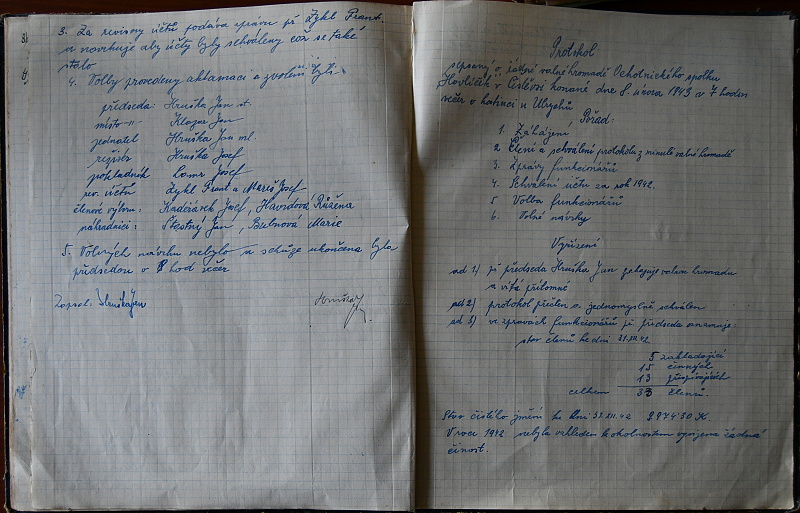 3. Za revisory účtů podává zprávu př Zykl Frant.
a navrhuje aby účty byly schváleny což se také
stalo
4. Volby provedeny aklamací a zvoleni byli
předseda: Hruška Jan st.
místo -"- Klazar Jan
jednatel Hruška Jan ml.
režisér Hruška Josef
pokladník Josef
rev. účtů Zykl Frant a Mareš Josef
členové výboru: Josef, Růžena
náhradníci: Šťastný Jan, Bubnová Marie
5. Volných návrhů nebylo a schůze ukončena byla
předsedou v 8 hod večer
Zapsal: Hruška Jan
Protokol
sepsaný o řádné valné hromadě Ochotnického spolku
Havlíček v konané dne 8. února 1943 v 7 hodin
večer v hostinci u
Pořad:
1. Zahájení
2. Čtení a schválení protokolu z minulé valné hromadě
3. Zprávy funkcionářů
4. Schválení účtů za rok 1942.
5 Volba funkcionářů
6. Volné návrhy
Vyřízení
ad 1) př předseda Hruška Jan zahajuje valnou hromadu
a vítá přítomné
ad 2) protokol přečten a jednomyslně schválen
ad 3) ve zprávách funkcionářů př předseda oznamuje:
stav členů ke dni 31.XII.42
5 zakládající
15 činných
13 přispívajících
celkem 33 členů.
Stav čistého jmění ke dni 31.XII.42 2974.30 K.
V roce 1942 nebyla vzhledem k okolnostem vyvíjena žádná
činost.